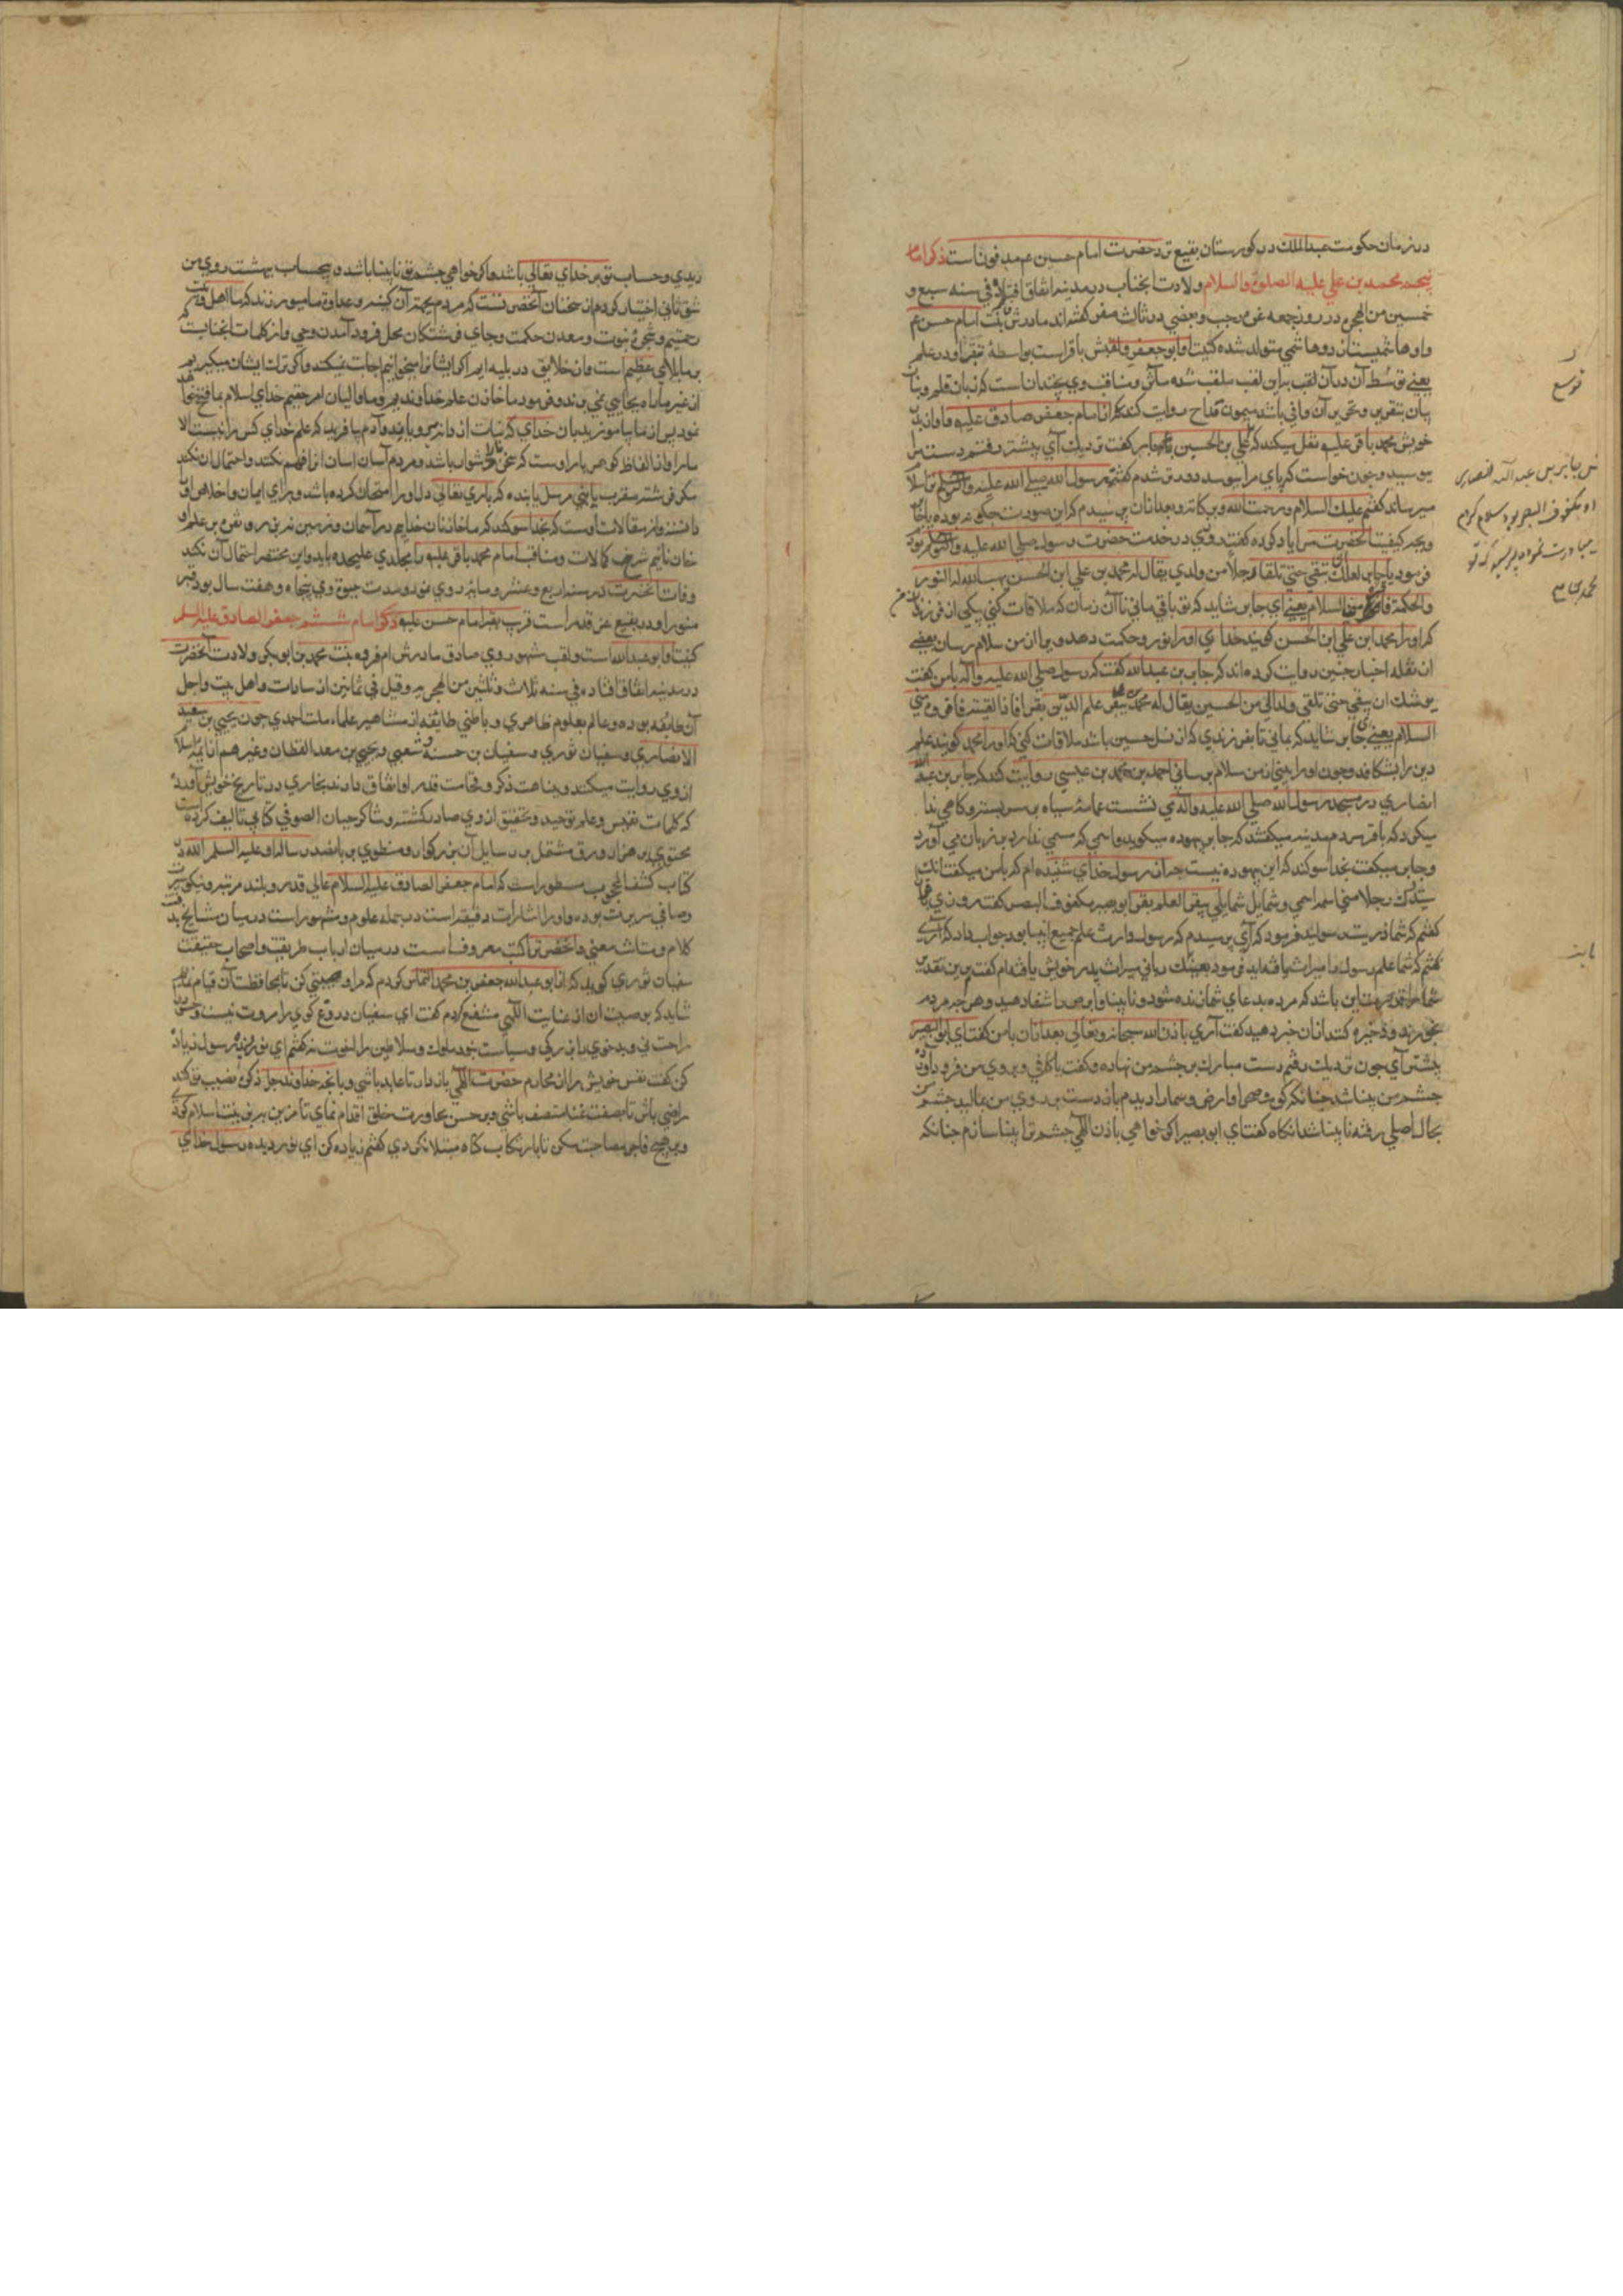 در زمان حکومت عبدالملک در کورستان بقیع نزد حضرت امام حسین عم مدفونست ذکر امام
پنجم محمد بن علي علیه الصلوة والسلام ولادت انجناب در مدینه اتفاق افتاد في سنه سبع و
خمسین من الهجره در روز جمعه غره رجب و بعضي در ثالث صفر کفته اند مادرش بنت امام حسن عم
یعني توسط آن در آن لقب براین لقب ملقب شده مآثر و مناقب وي نچندان است که زبان قلم و بنان
بیان بتقریر و تحریر آن وافي باشد میمون قداح روایت کند که از امام جعفر صادق علیه و او از پدر
خویش محمد باقر علیه نقل میکند که علي بن الحسین جابر کفت نزدیک آي پیشتر رفتم دست مرا
ببوسید و چون خواست که پاي مرا ببوسد دور تر شدم کفتم رسول الله صلي الله علیه و آله وسلم ترا سلام
میرساند کفتم علیک السلام و رحمت الله و برکاته و بعد از آن پرسیدم که این صورت چکونه بوده یا جابر
و بچه کیفیت آنحضرت مرا یاد کرده کفت روزي در خدمت حضرت رسول صلي الله علیه و آله وسلم بودم
فرمود یا جابر لعلک تبقي حتي تلقا رجلا من ولدي یقال له محمد بن علي ابن الحسین یهب الله له النور
والحکمة فاقرئه مني السلام یعني اي جابر شاید که تو باقي ماني تا آن زمان که ملاقات کني یکي از فرزندان من
که او را محمد ابن علي ابن الحسین کویند خداي اورا نور و حکمت دهد ویرا از من سلام رسان بعضي
از نقله اخبار چنین روایت کرده اند که جابر بن عبدالله کفت که رسول صلي الله علیه وآله با من کفت
یوشک ان تبقي حتي تلقي ولدا لي من الحسین یقال له محمد یبقر علم الدین بقرا فاذا لقیته فاقرءه مني
السلام یعني اي جابر شاید که بماني تا بفرزندي که از نسل حسین باشد ملاقات کني که اورا محمد کویند علم
دین را بشکافد و چون اورا ببیني از من سلام برساني احمد بن محمد بن عیسي روایت کند که جابر بن عبدالله
انصاري در مسجد رسول الله صلي الله علیه وآله مي نشست عمامهٔ سیاه بر سر بسته و کاهي ندا
میکرد که باقر مردم مدینه میکفتند که جابر بیهوده میکوید و اسمي که مسمي ندارد بر زبان مي آورد
و جابر میکفت بخدا سوکند که این بیهوده نیست چه از رسول خداي شنیده ام که با من میکفت انک
ستدرک رجلا مني اسمه اسمي و شمایله شمایلي یبقر العلم بقرا ابو بصیر مکفوف البصر کفت روزي باقر را
کفتم که شما ذریت رسولید فرمود که آري پرسیدم که رسول وارث علم جمیع انبیا بود جواب داد که آري
کفتم که شما علم رسول را میراث یافته اید فرمود بعینک ربّاني میراث پدر خویش یافته ام کفتم برین تقدیر
شما را قدرت این باشد که مرده بدعاي شما زنده شود و نابینا و ابرص را شفا دهید و هر چه مردم
بخورند و ذخیره کنند از آن خبر دهید کفت آري باذن الله سبحانه و تعالي بعد از آن با من کفت اي ابو البصیر
پیشتر آي چون نزدیک رفتم دست مبارک بر چشم من نهاده و کفت یا کافي و بر روي من فرود آورد
چشم من بینا شد چنانکه کوه و صحرا و ارض و سما را دیدم باز دست بر روي من بمالید چشم من
بحال اصلي رفته نابینا شد انکاه کفت اي ابو بصیر اکر خواهي باذن الهي چشم ترا بینا سازم چنانکه
توسع
جابر بن عبد الله انصاری
او مکفوف البصر بود سلام کردم
محمد بن علی
باید
دیدي و حساب تو بر خداي تعالي باشد و اکر خواهي چشم تو نابینا باشد و بیحساب بهشت روي من
شق ثاني اختیار کردم از سخنان آنحضرتست که مردم بچه ز آن کینه و عداوة ما میورزند که ما اهل بیت
رحمتیم و شجره نبوت و معدن حکمت و جاي فرشتکان محل فرود آمدن وحي و از کلمات انجنابست
بر ما بلاي عظیم است و از خلایق در بلیه ایم اکر ایشان را میخوانیم اجابت نمیکنند و اکر ترک ایشان میکیریم
از غیر ما راه بجایي نمي برند و فرمود ما خازن علم خداوندیم و ما والیان امر حقیم خداي اسلام بما فتح
ما را و از الفاظ کوهر بار اوست که سخن ما دشوار باشد و مردم آسان آسان آنرا فهم نکنند و احتمال آن نکند
مکر فرشته مقرب یا نبي مرسل یا بنده که باري تعالي دل او را امتحان کرده باشد و براي ایمان و اخلاص او
دانسته و از مقالات اوست که بخدا سوکند که ما خازنان خداییم در آسمان و زمین نه بر زر و نقره بر علم او
خازنانیم شرح کمالات و مناقب امام محمد باقر علیه را مجلدي علیحده باید و این مختصر احتمال آن نکند
وفات انحضرت در سنه اربع و عشر و مائه روي نمود و مدت حیوة وي پنجاه و هفت سال بود قبر
منور او در بقیع غرقد است قریب بقبر امام حسن علیه ذکر امام ششم جعفر الصادق علیه السلم
کنیت او ابو عبدالله است و لقب مشهور وي صادق مادرش ام فروه بنت محمد بن ابو بکر و ولادت آنحضرت
در مدینه اتفاق افتاده في سنه ثلاث و ثلثین من الهجریه و قیل في ثمانین از سادات و اهل بیت و اجل
آن طایفه بوده و عالم بعلوم ظاهري و باطني طایفه از مشاهیر علماء ملت احمدي چون یحیي بن سعید
الانصاري و سفیان ثوري و سفیان بن و شعبي و یحیي بن سعد القطان و غیرهم از ائمه اسلام
از وي روایت میکنند و بنباهت ذکر و فخامت قدر او اتفاق دارند بخاري در تاریخ خویش آورده
که کلمات نفیس و علم توحید و تحقیق از وي صادر کشته و شاکرد جبان الصوفي کتابي تالیف کرده است
محتوي بر هزار ورق مشتمل بر رسایل آن بزرکوار و منطوي بر پانصد رساله او علیه السلم الله در
کتاب کشف المحجوب مسطور است که امام جعفر الصادق علیه السلام عالي قدر و بلند مرتبه و نیکو سیرت
و صافي سریرت بوده و او را اشارات دقیقه است در جمله علوم و مشهور است در میان مشایخ بدقت
کلام و متانت معني و آنحضرت را کتب معروف است در میان ارباب طریقت و اصحاب حقیقت
سفیان ثوري کوید که از ابو عبدالله جعفر بن محمد التماس کردم که مرا وصیتي کن تا بمحافظت آن قیام نمایم
شاید که بوصیت آن از عنایت الهي منتفع کردم کفت اي سفیان دروغ کوي را مروت نیست و حسود
راحت ني و بدخوي را بزرکي و سیاست نبود ملوک و سلاطین را اخوت نه کفتم اي نور دیده رسول زیاده
کن کفت نفس خویش را از محارم حضرت الهي باز دار تا عابد باشي و بانچه خداوند جل ذکره نصیب تو کند
راضي باش تا بصفت غنا متصف باشي و بر حسن مجاورت خلق اقدام نماي تا مزین بزینت اسلام کردي
و بر هیچ فاجر مصاحبت مکن تا بارتکاب کناه مبتلا نکردي کفتم زیاده کن اي نور دیده رسول خداي